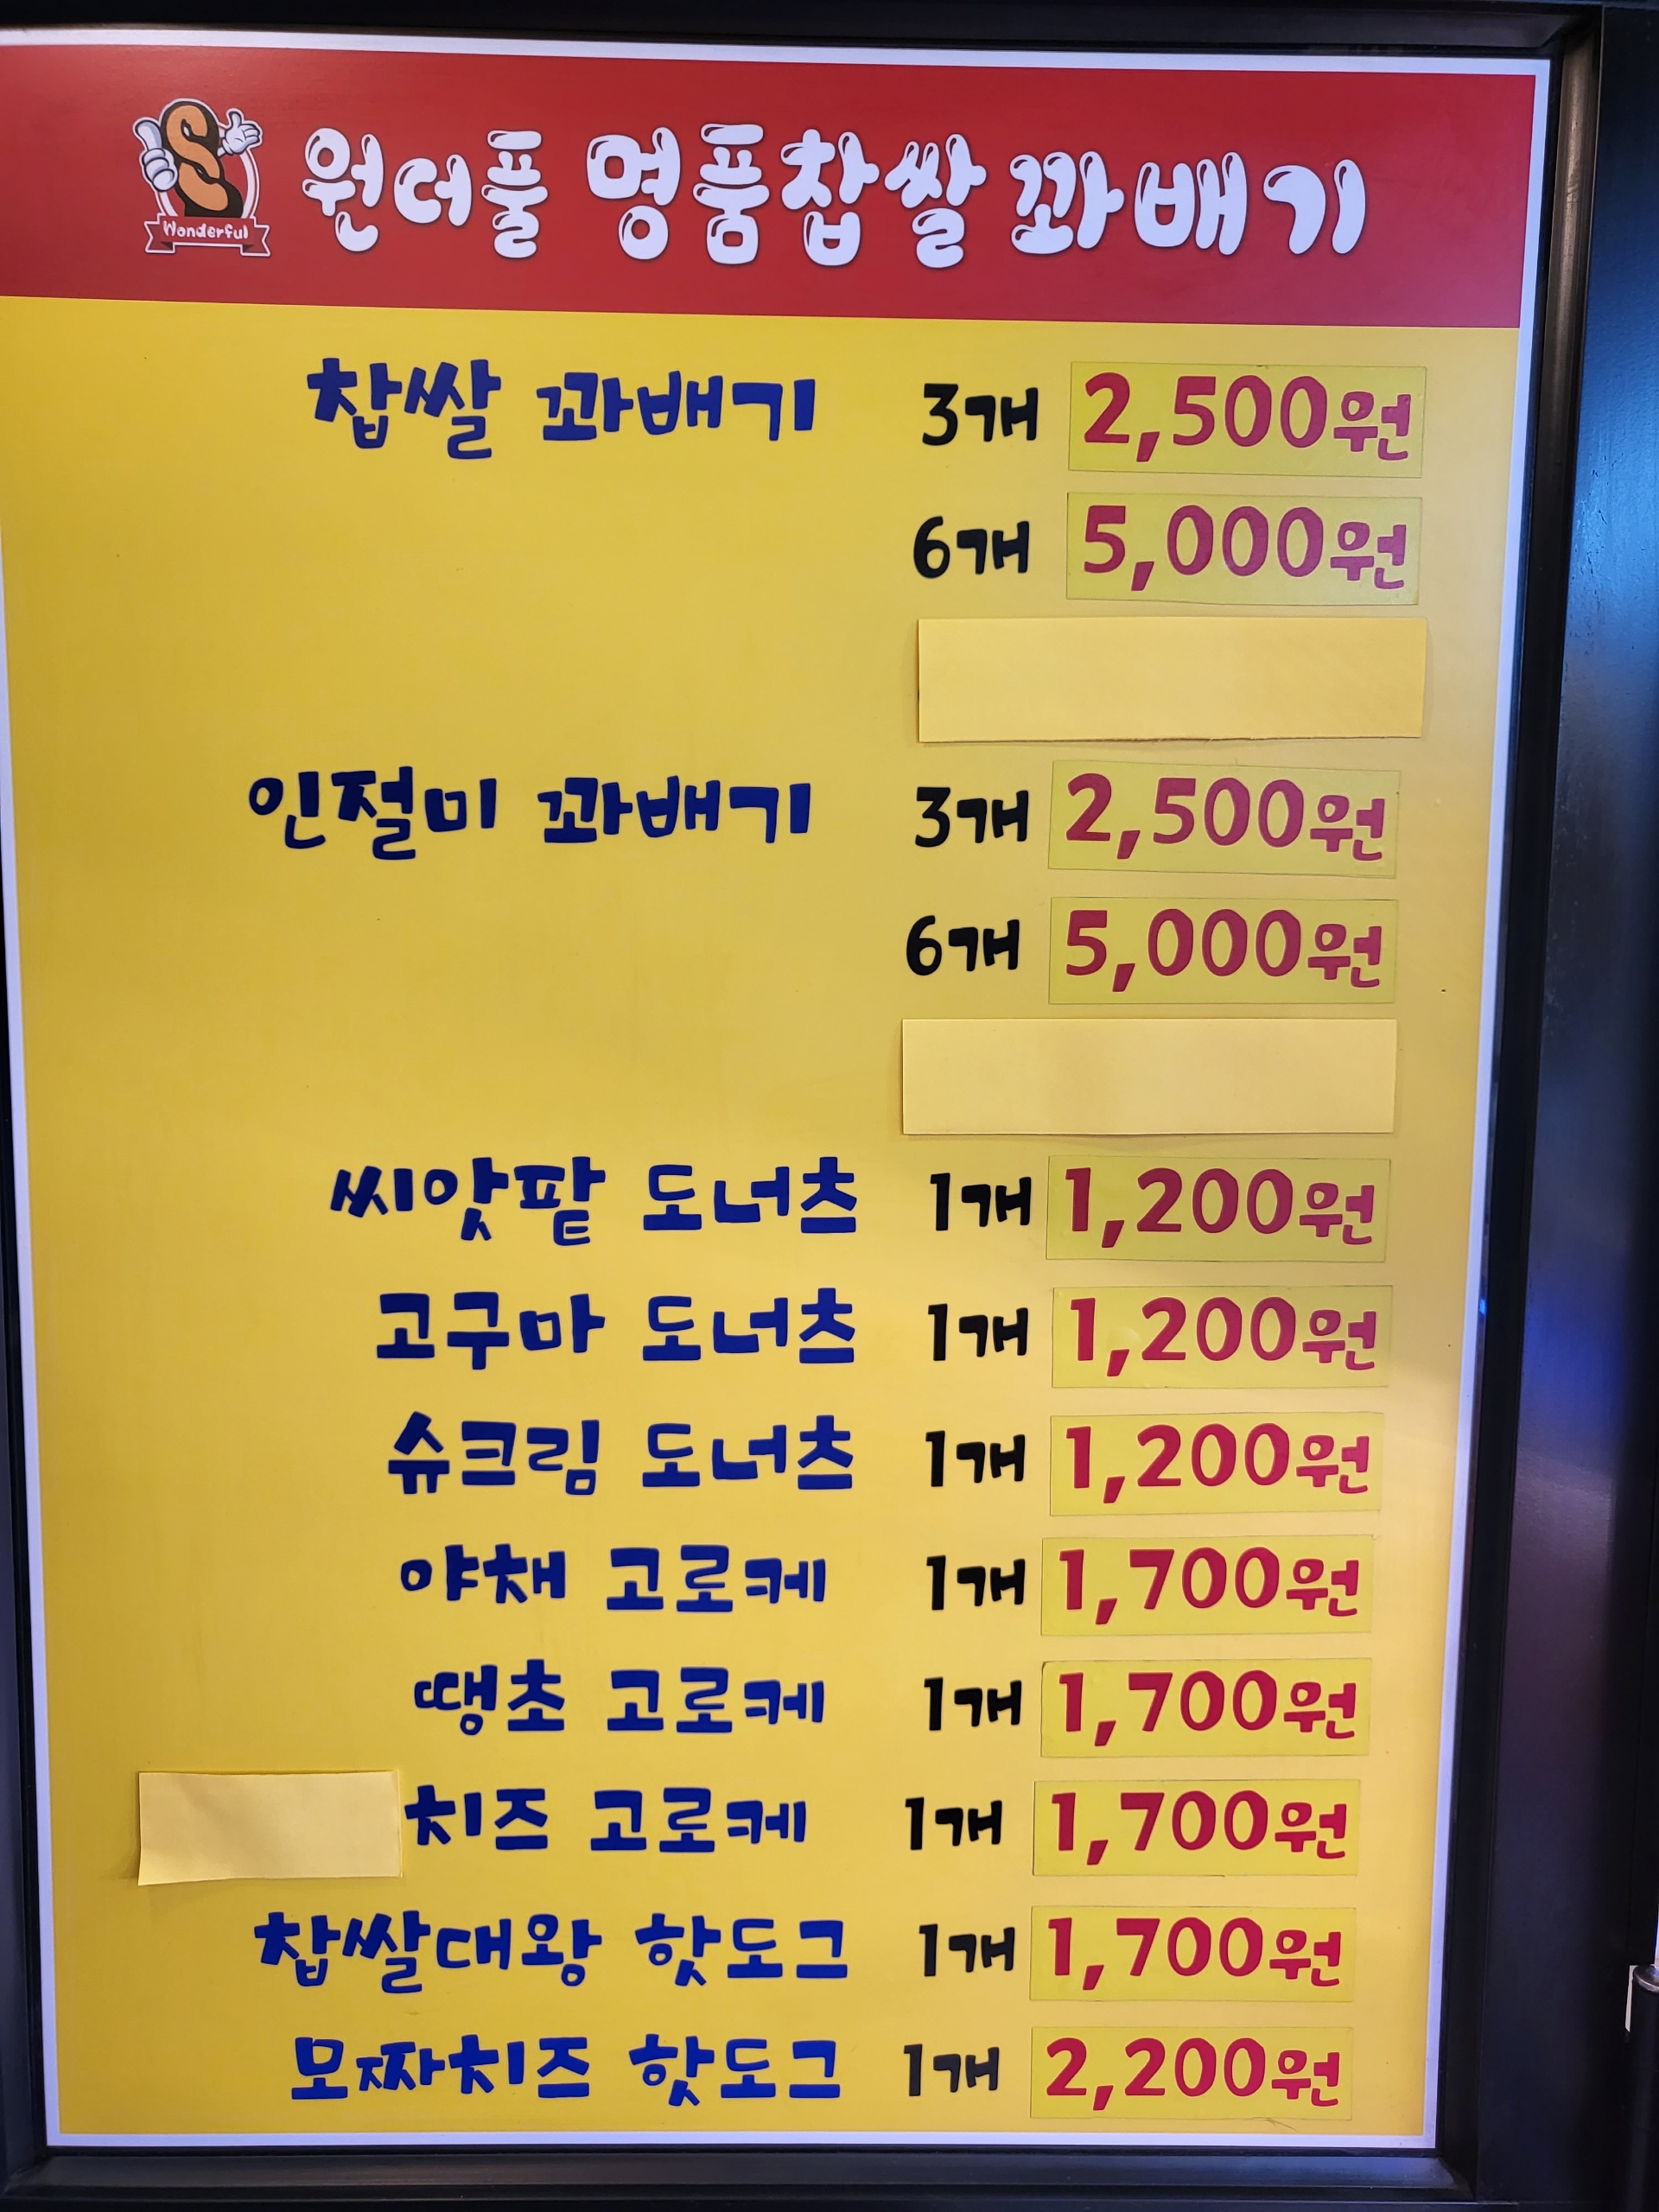 Wonderful
원더풀 명품찹쌀 꽈배기
찹쌀 꽈배기 3개 2,500원
6개 5,000원
인절미 꽈배기 3개 2,500원
6개 5,000원
씨앗팥 도너츠 1개 1,200원
고구마 도너츠 1개 1,200원
슈크림 도너츠 1개 1,200원
야채 고로케 1개 1,700원
땡초 고로케 1개 1,700원
치즈 고로케 1개 1,700원
찹쌀대왕 핫도그 1개 1,700원
모짜치즈 핫도그 1개 2,200원